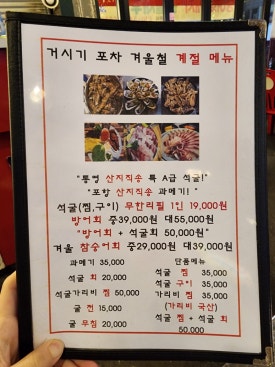 거시기 포차 겨울철 계절 메뉴
"통영 산지직송 특 A급 석굴!"
"포항 산지직송 과메기!"
석굴(찜,구이) 무한리필 1인 19,000원
방어회 중39,000원 대55,000원
"방어회 + 석굴회 50,000원"
겨울 참숭어회 중29,000원 대39,000원
과메기 35,000
석굴 회 20,000
석굴가리비 찜 50,000
굴 전 15,000
굴 무침 20,000
단품메뉴
석굴 찜 35,000
석굴 구이 35,000
가리비 찜 35,000
(가리비 국산)
석굴 찜 + 석굴 회
50,000